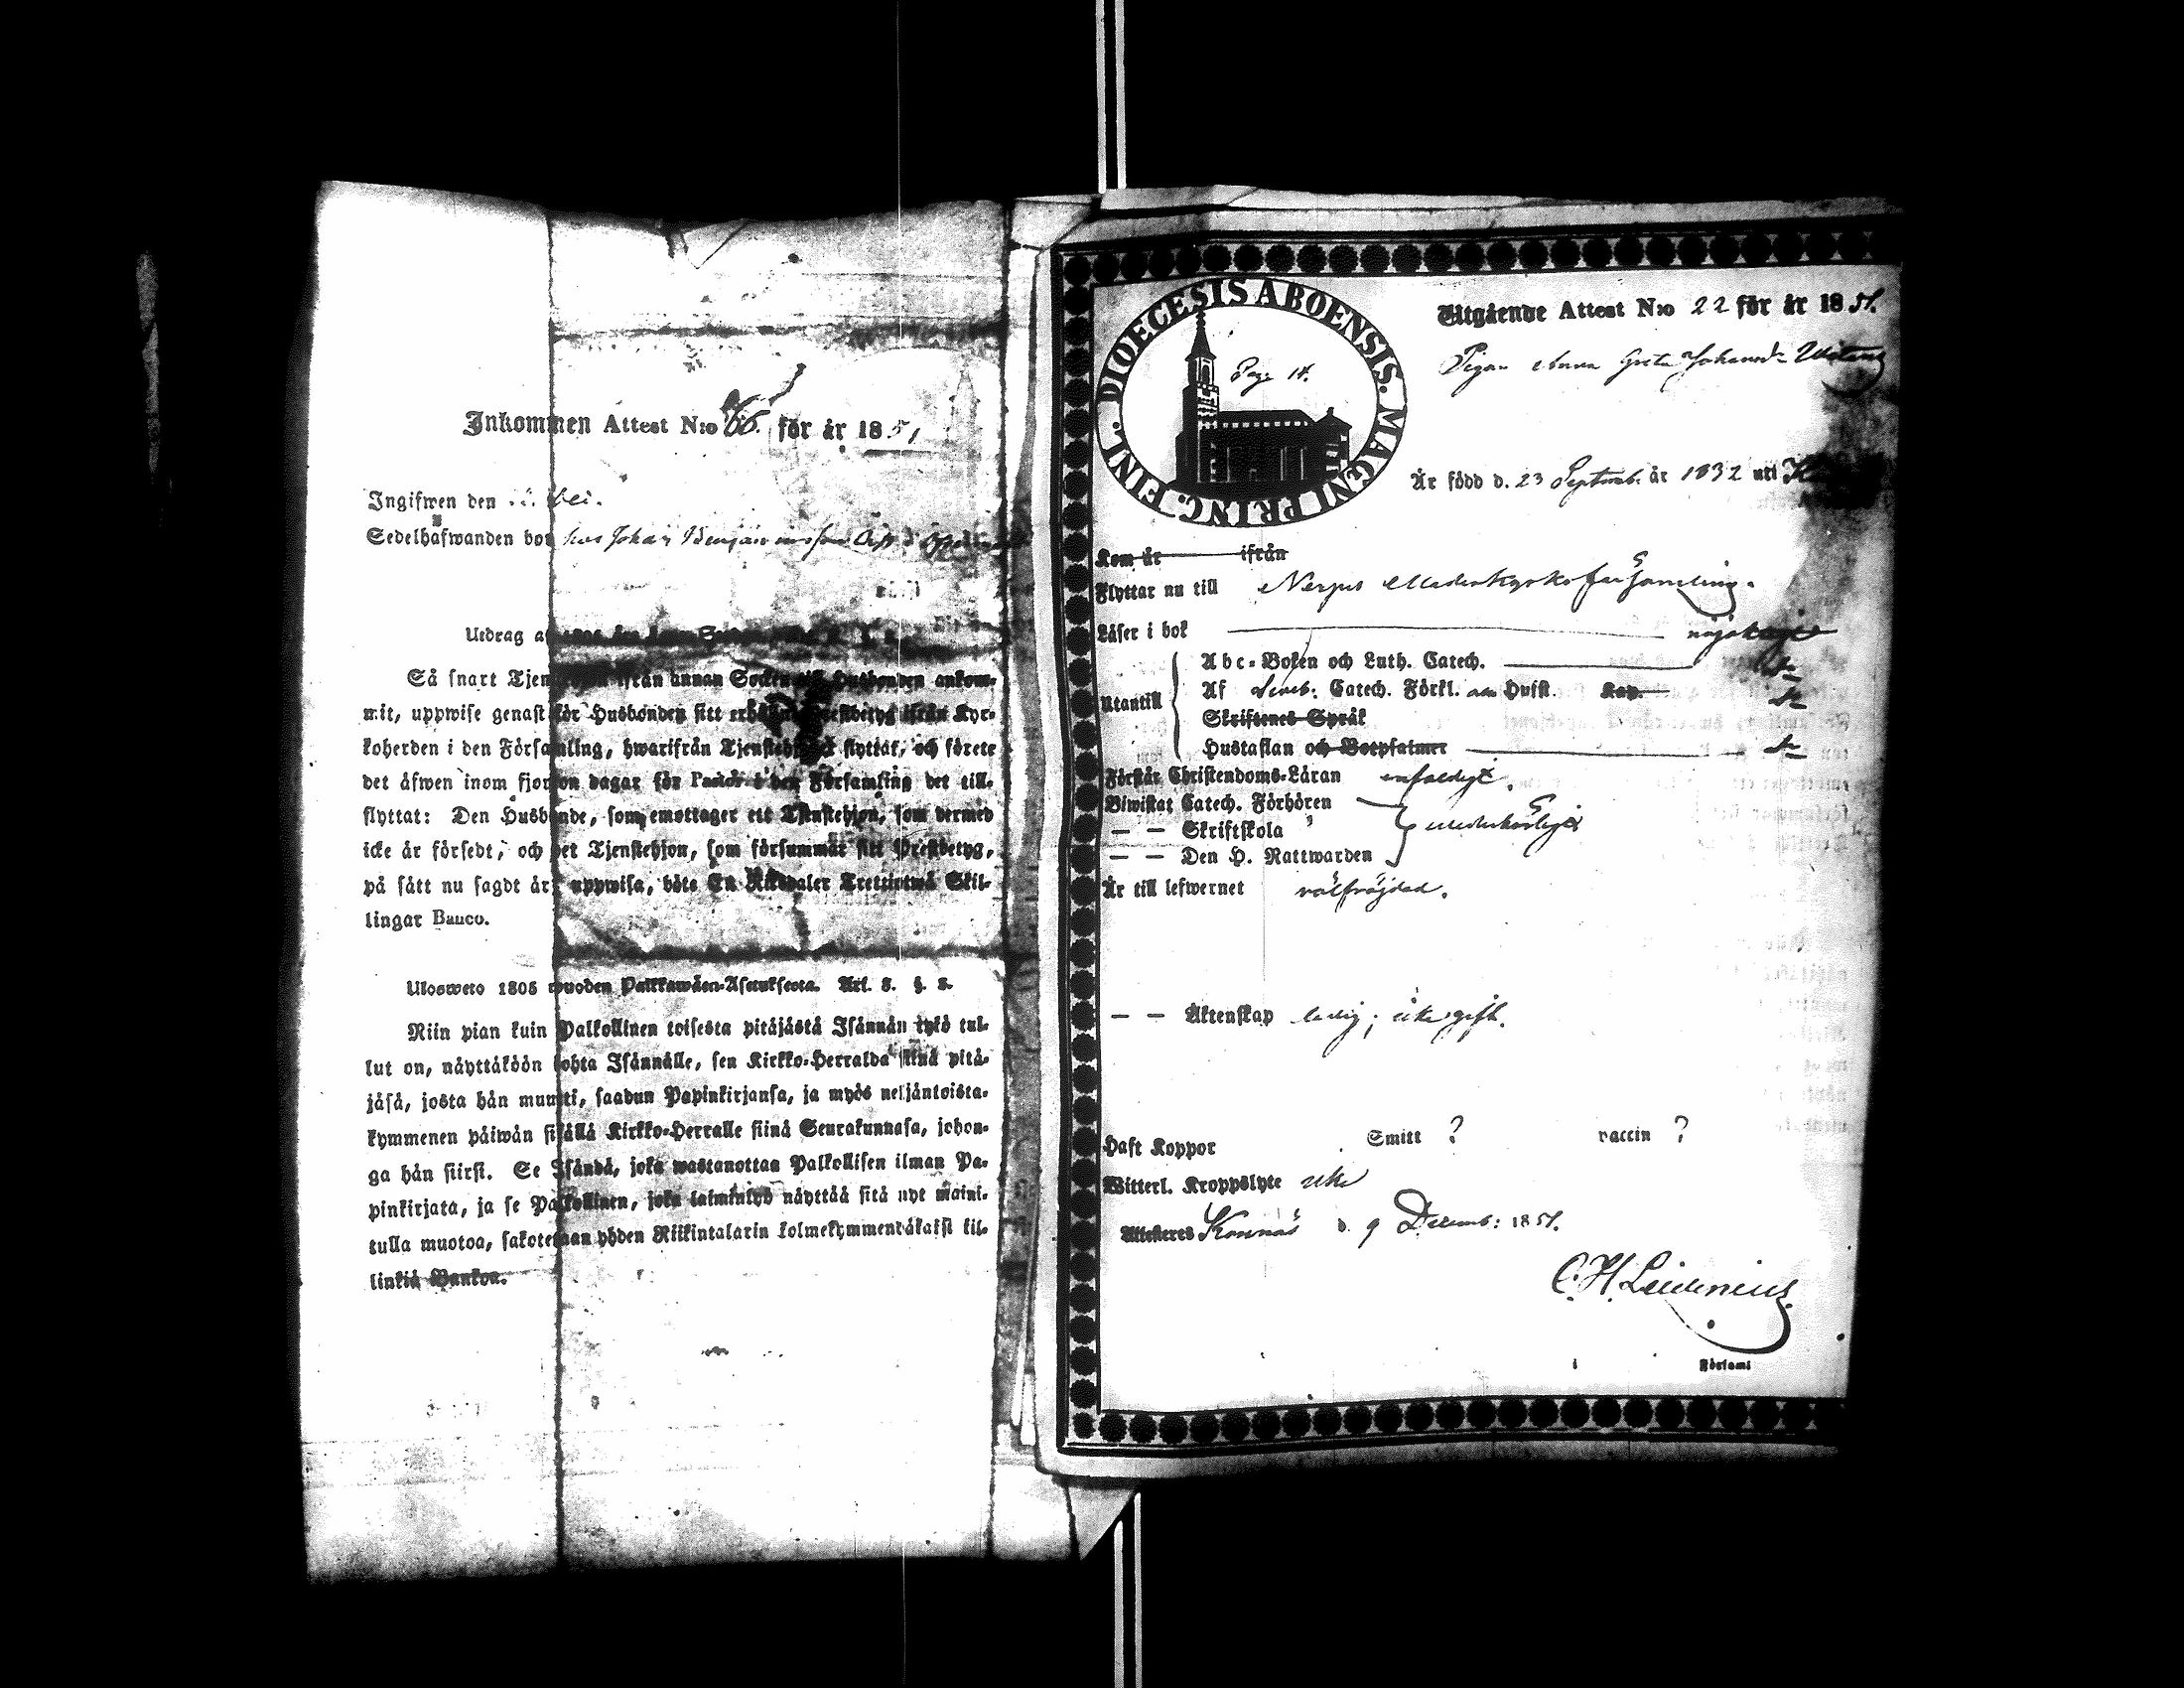 Inkommen Attest N:o 66. för år 1851,
Ingifwen den
Sedelhafwanden bor hos Johan Benjaminsson
Utdrag
Så snart Tjen ifrån annan Socken Husbonden ankom-
mit, uppwise genast för Husbonden sitt Prestbetyg ifrån Kyr-
koherden i den Församling, hwarifrån Tjenstehjonet flyttat, och förete
det äfwen inom fjorton dagar för Pastor i den Församling det till-
flyttat: Den Husbonde, som emottager ett Tjenstehjon, som dermed
icke är försedt, och det Tjenstehjon, som försummar sitt Prestbetyg,
på sätt nu sagdt är, uppwisa, böte En Riksdaler Trettiotwå Skil-
lingar Banco.
Ulosweto 1805 wuoden Palkkawäen-Asetuksesta. Art. 3. §. 2.
Niin pian kuin Palkollinen toisesta pitäjästä Isännän tykö tul-
lut on, näyttäköön kohta Isännälle, sen Kirkko-Herralda siinä pitä-
jäsä, josta hän muutti, saadun Papinkirjansa, ja myös neljäntoista-
kymmenen päiwän sisällä Kirkko-Herralle siinä Seurakunnasa, johon-
ga hän siirsi. Se Isändä, joka wastanottaa Palkollisen ilman Pa-
pinkirjata, ja se Palkollinen, joka laiminlyö näyttää sitä nyt maini-
tulla muotoa, sakotetaan yhden Riikintalarin kolmekymmendäkaksi kil-
linkiä Bankoa.
DIOECESIS ABOENSIS. MAGNI PRINC. FINL.
Page 14.
Utgående Attest N:o 22 för år 1851.
Pigan Anna Greta Johansd:r
Är född d. 23 Septemb. år 1832 uti
Kom år ifrån
Flyttar nu till Nerpes Moderkyrkoförsamling.
Läser i bok nöjaktigt
Utantill
Abc-Boken och Luth. Catech. d:o
Af Sveb: Catech. Förkl. Hufst. Kap. d:o
Skriftenes Språk
Hustaflan och Botpsalmer d:o
Förstår Christendoms-Läran enfaldigt.
Biwistat Catech. Förhören
— — Skriftskola
— — Den H. Nattwarden
Är till lefwernet välfrejdad.
— — Äktenskap ledig; icke gift.
Haft Koppor Smitt ? vaccin ?
Witterl. Kroppslyte icke
Attesteres Korsnäs d. 9 Decemb: 1851.
C. H. Leidenius